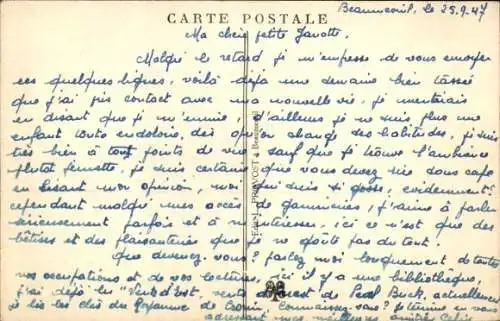 CARTE POSTALE
Beaumesnil, le 25.9.47
Ma chère petite Janotte.
Malgré le retard je m'empresse de vous envoyer
ces quelques lignes, voilà déjà une semaine bien tassée
que j'ai pris contact avec ma nouvelle vie, je mentirais
en disant que je m'ennuie, d'ailleurs je ne suis plus une
enfant toute endolorie, dès qu'on change ses habitudes, je suis
très bien à tout points de vue sauf que je trouve l'ambiance
plutôt fumiste, je suis certaine que vous devez rire sous cape
en lisant mon opinion, moi qui suis si gosse, évidemment!
cependant malgré mes accès de gamineries, j'aime à parler
sérieusement parfois et à m'intéresser, ici ce n'est que des
bêtises et des plaisanteries que je ne goûte pas du tout.
Que devenez vous? parlez moi longuement de toutes
vos occupations et de vos lectures, ici il y a une bibliothèque,
j'ai déjà lu "Vent d'Est, vent d'ouest de Pearl Buck, actuellement
je lis les clés du Royaume de Cronin, connaissez-vous? je termine en vous
adressant mes meilleures amitiés
Edit. PRÉVOST à